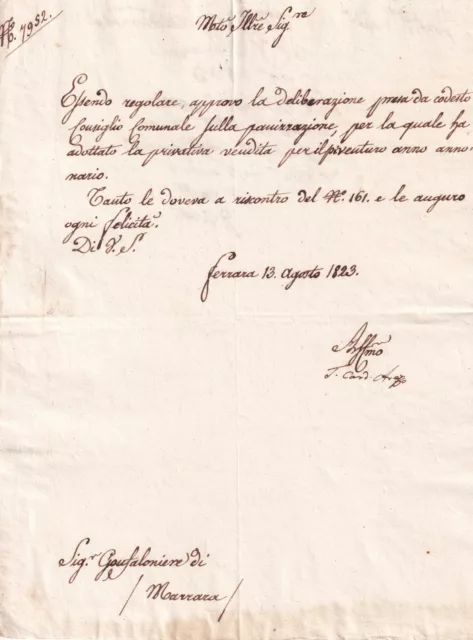 N.º 7952.
Molto Illre Sigre
Essendo regolare, approvo la deliberazione presa da codesto
Consiglio Comunale sulla panizzazione, per la quale ha
adottato la privativa vendita per il p.º venturo anno anno-
nario.
Tanto le doveva a riscontro del N.º 161. e le auguro
ogni felicità.
Di V. S.
Ferrara 13. Agosto 1823.
Affmo
T. Card. Arezzo
Sig.r Gonfaloniere di
/ Marrara /